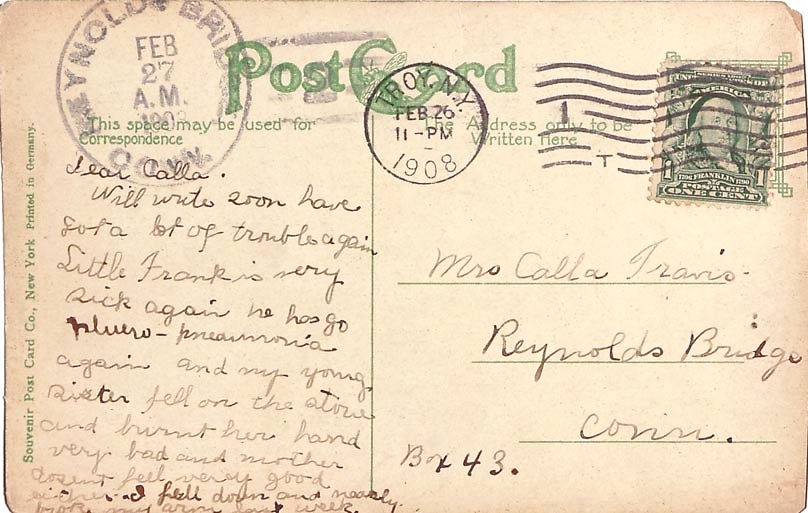 REYNOLDS BRID
FEB
27
A.M.
1908
CONN.
Post Card
TROY, N.Y.
FEB 26
11-PM
1908
1
T
AMERICA
1706 FRANKLIN 1790
POSTAGE
ONE CENT
This space may be used for
Correspondence
Address only to be
Written Here
Souvenir Post Card Co., New York Printed in Germany.
dear Calla.
Will write soon have
got a lot of troubles again
Little Frank is very
sick again he has go
pluero-pneaumonia
again and my young
sister fell on the stove
and burnt her hand
very bad and mother
dosent fell verey good
either I fell down and nearly
broke my arm last week.
Mrs Calla Travis
Reynolds Bridge
Conn.
Box 43.